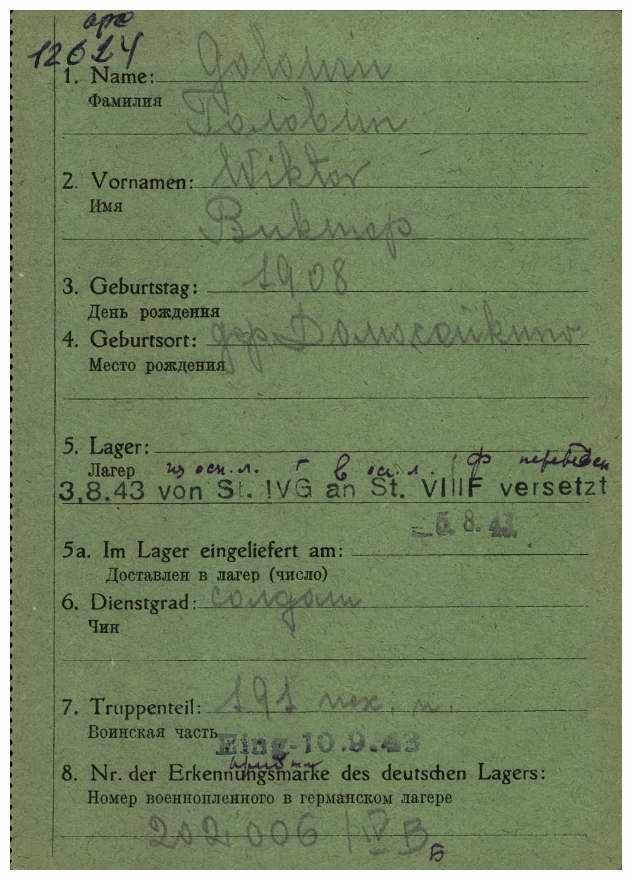 12624
1. Name: Golowin
Фамилия
Головин
2. Vornamen: Wiktor
Имя
Виктор
3. Geburtstag: 1908
День рождения
4. Geburtsort: дер.
Место рождения
5. Lager:
Лагер из осн. л. г в осн. л. ф переведен
3.8.43 von St. IVG an St. VIIIF versetzt
- 5. 8. 43
5a. Im Lager eingeliefert am:
Доставлен в лагер (число)
6. Dienstgrad: солдат
Чин
7. Truppenteil: 191 пех. п.
Воинская часть
Eing-10.9.43
8. Nr. der Erkennungsmarke des deutschen Lagers:
Номер военнопленного в германском лагере
202006 / IV B
Б